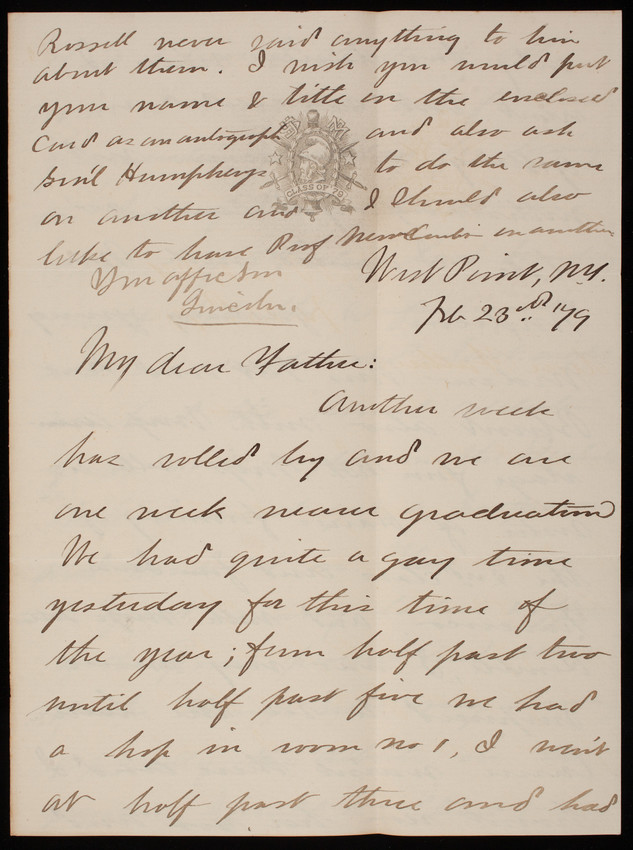 Rossell never said anything to him
about them. I wish you would put
your name & title on the enclosed
Card as an autograph and also ask
Gen'l Humphreys to do the same
on another and I should also
like to have Prof Newcomb's on another
Your affec son
Lincoln.
CLASS OF 79
West Point, N.Y.
Feb 23rd 1879
My dear Father:
Another week
has rolled by and we are
one week nearer graduation
We had quite a gay time
yesterday for this time of
the year; from half past two
until half past five we had
a hop in room no 1, I went
at half past three and had